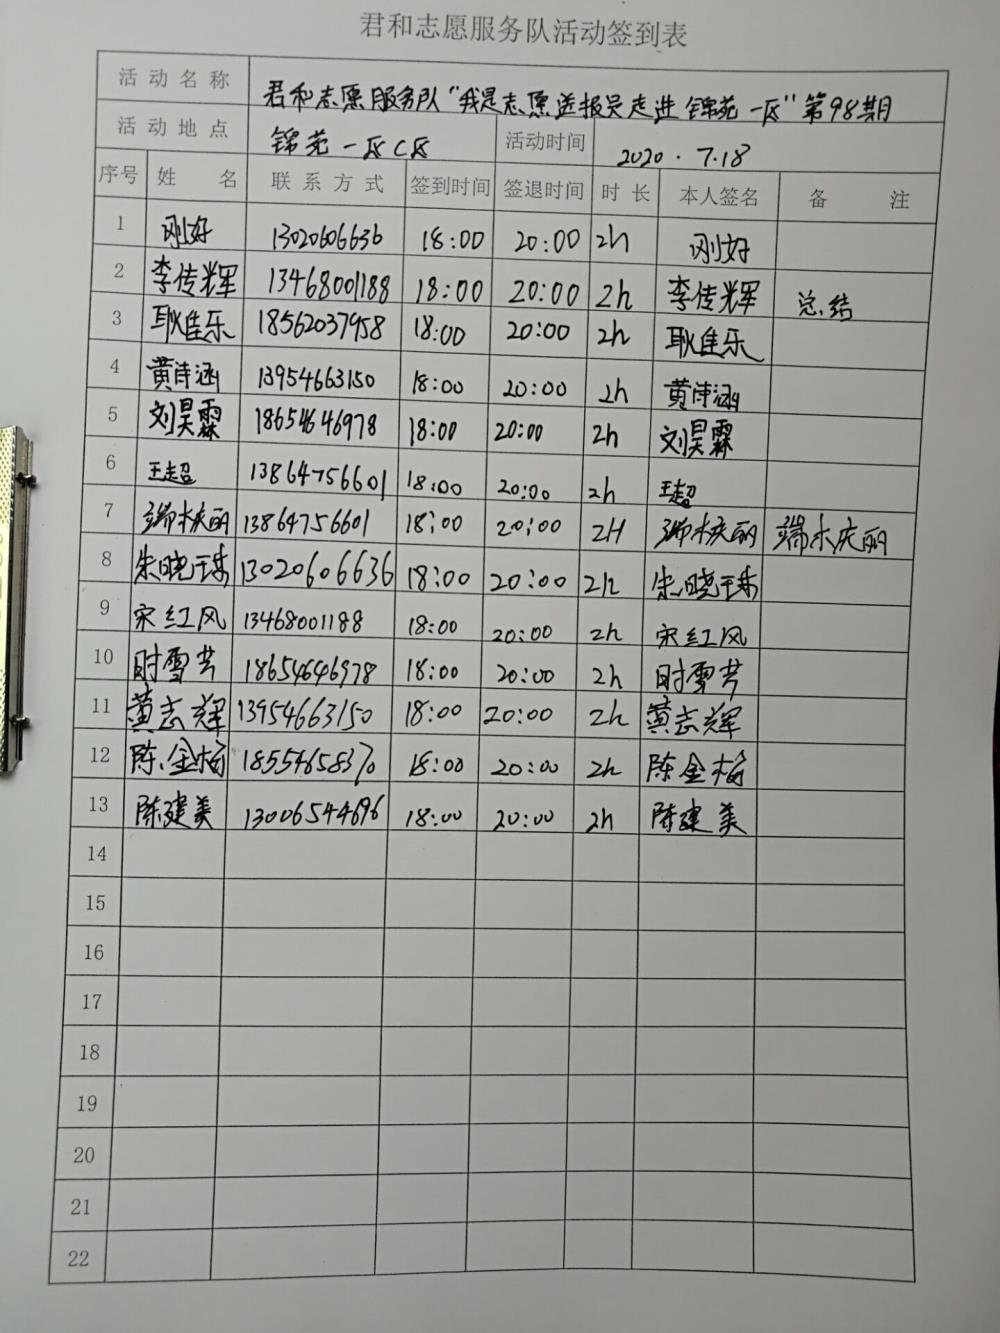 君和志愿服务队活动签到表
活动名称 君和志愿服务队“我是志愿送报员走进锦苑一区”第98期
活动地点 锦苑一区C区 活动时间 2020.7.18
序号 姓名 联系方式 签到时间 签退时间 时长 本人签名 备注
1 刚好 13020606636 18:00 20:00 2h 刚好
2 李传辉 13468001188 18:00 20:00 2h 李传辉 总结
3 耿佳乐 18562037958 18:00 20:00 2h 耿佳乐
4 黄诗涵 13954663150 18:00 20:00 2h 黄诗涵
5 刘昊霖 18654646978 18:00 20:00 2h 刘昊霖
6 王超 13864756601 18:00 20:00 2h 王超
7 端木庆丽 13864756601 18:00 20:00 2H 端木庆丽 端木庆丽
8 朱晓玉珠 13020606636 18:00 20:00 2h 朱晓玉珠
9 宋红风 13468001188 18:00 20:00 2h 宋红风
10 时雪芹 18654646978 18:00 20:00 2h 时雪芹
11 黄志辉 13954663150 18:00 20:00 2h 黄志辉
12 陈金梅 18554658370 18:00 20:00 2h 陈金梅
13 陈建美 13006544696 18:00 20:00 2h 陈建美
14
15
16
17
18
19
20
21
22